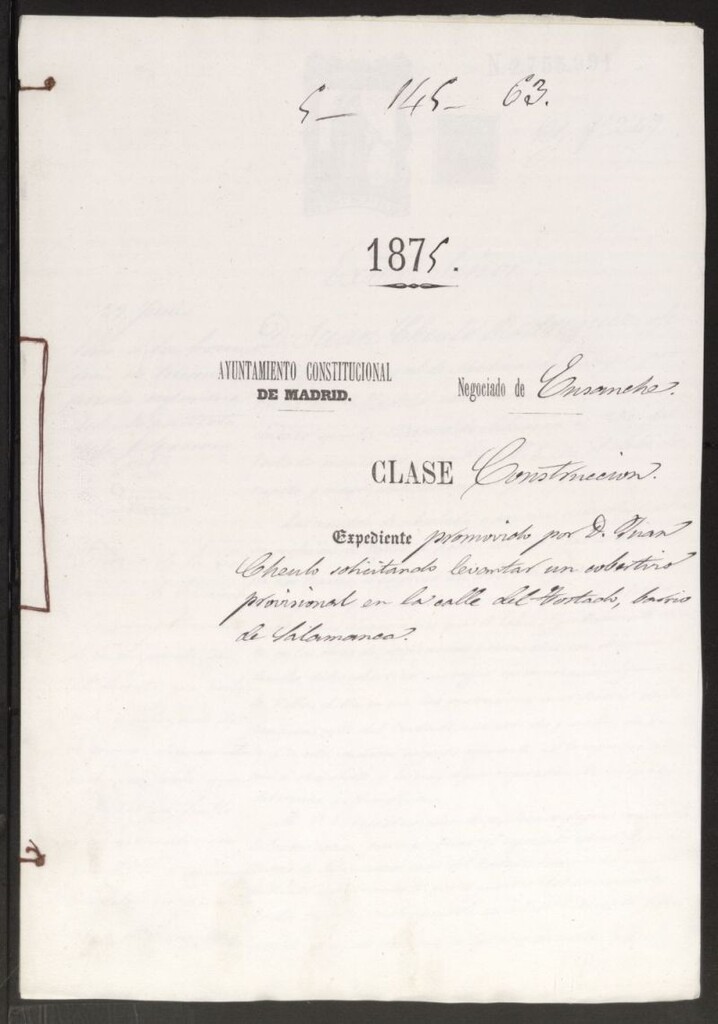 5 — 145 — 63.
1875.
AYUNTAMIENTO CONSTITUCIONAL
DE MADRID.
Negociado de Ensanche.
CLASE Construccion.
Expediente promovido por D. Juan
solicitando levantar un cobertizo
provisional en la calle del barrio
de Salamanca.